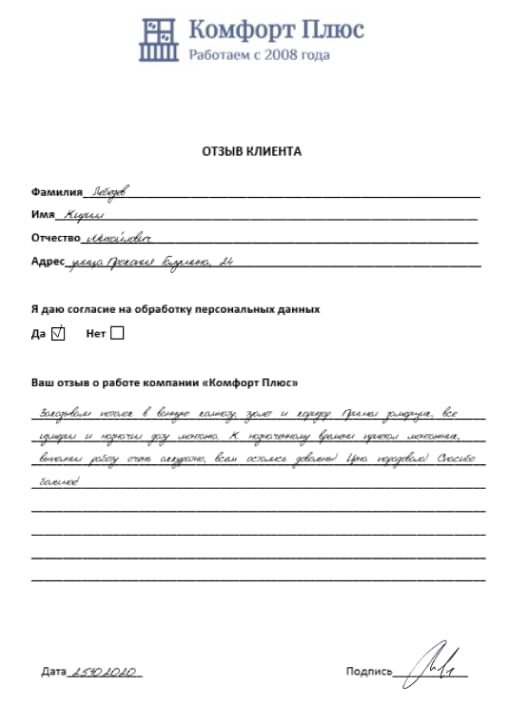 Комфорт Плюс
Работаем с 2008 года
ОТЗЫВ КЛИЕНТА
Фамилия Лебедев
Имя Кирилл
Отчество Михайлович
Адрес улица Прокопия Галушина, 24
Я даю согласие на обработку персональных данных
Да ☑ Нет ☐
Ваш отзыв о работе компании «Комфорт Плюс»
Заказывали потолок в ванную комнату, туалет и коридор. Приехал замерщик, все
измерил и назначил дату монтажа. К назначенному времени приехал монтажник,
выполнил работу очень аккуратно, всем остались довольны! Цена порадовала! Спасибо
большое!
Дата 25.10.2020 Подпись